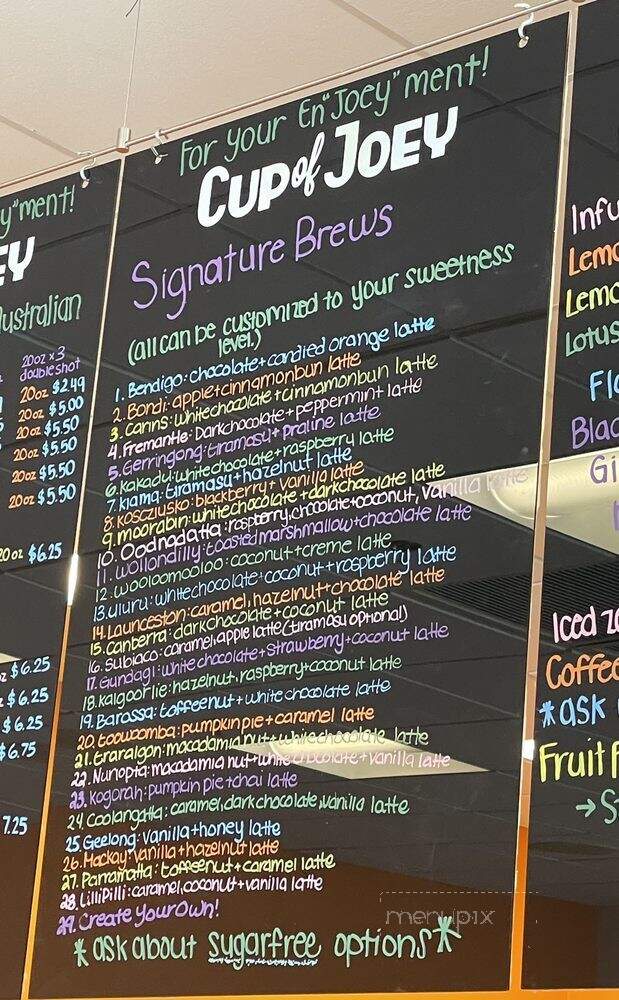 y"ment!
EY
Australian
20oz x 3
doubleshot
20oz $2.49
20oz $5.00
20oz $5.50
20oz $5.50
20oz $5.50
20oz $5.50
20oz $6.25
$6.25
$6.25
$6.25
$6.75
7.25
For your En"Joey"ment!
CUP of JOEY
Signature Brews
(all can be customized to your sweetness
level.)
1. Bendigo: chocolate + candied orange latte
2. Bondi: apple + cinnamonbun latte
3. Canns: whitechocolate + cinnamonbun latte
4. Fremantle: Darkchocolate + peppermint latte
5. Gerringong: tiramasu + praline latte
6. Kakadu: whitechocolate + raspberry latte
7. Kiama: tiramasu + hazelnut latte
8. Kosczlusko: blackberry + vanilla latte
9. moorabin: whitechocolate + darkchocolate latte
10. Oodnadatta: raspberry, chocolate + coconut, vanilla latte
11. Wollondilly: toasted marshmallow + chocolate latte
12. Woolloomooloo: coconut + creme latte
13. uluru: whitechocolate + coconut + raspberry latte
14. Launceston: caramel, hazelnut + chocolate latte
15. Canberra: darkchocolate + coconut latte
16. Subiaco: caramel, apple latte (tiramasu optional)
17. Gundagi: white chocolate + strawberry + coconut latte
18. Kalgoorlie: hazelnut, raspberry + coconut latte
19. Barossa: toffeenut + white chocolate latte
20. toowoomba: pumpkin pie + caramel latte
21. traralgon: macadamia nut + whitechocolate latte
22. Nuriopta: macadamia nut + white chocolate + vanilla latte
23. Kogorah: pumpkin pie + chai latte
24. Coolangatta: caramel, dark chocolate, vanilla latte
25. Geelong: vanilla + honey latte
26. Mackay: vanilla + hazelnut latte
27. Parramatta: toffeenut + caramel latte
28. LilliPilli: caramel, coconut + vanilla latte
29. Create Your Own!
*ask about sugarfree options*
Infu
Lemo
Lemo
Lotus
Fl
Blac
Gi
Iced
Coffee
*ask
Fruit F
→ S
menupix